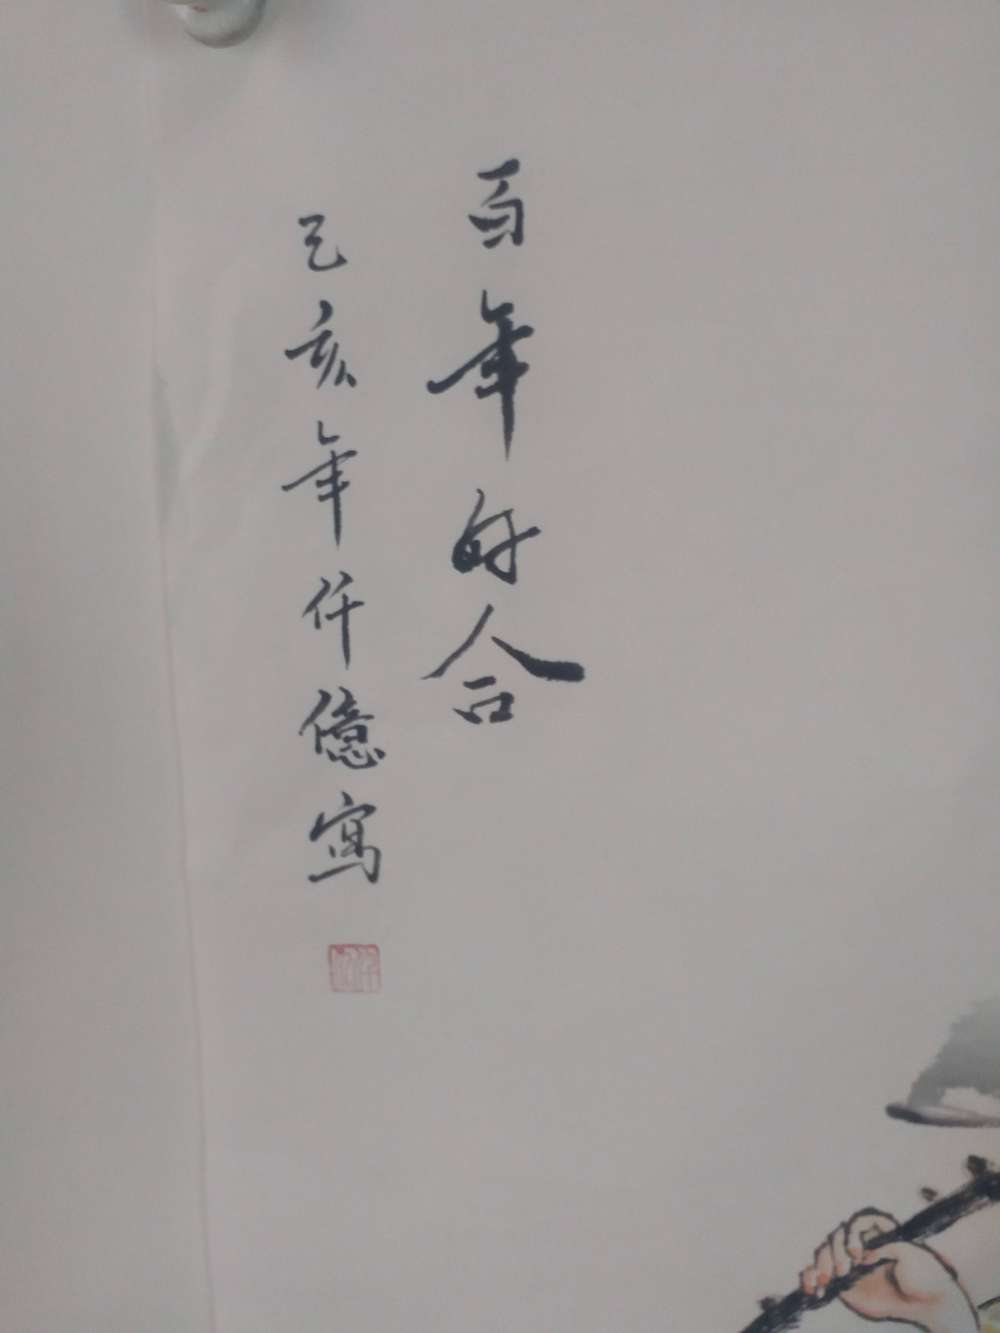 百年好合
己亥年仟億寫